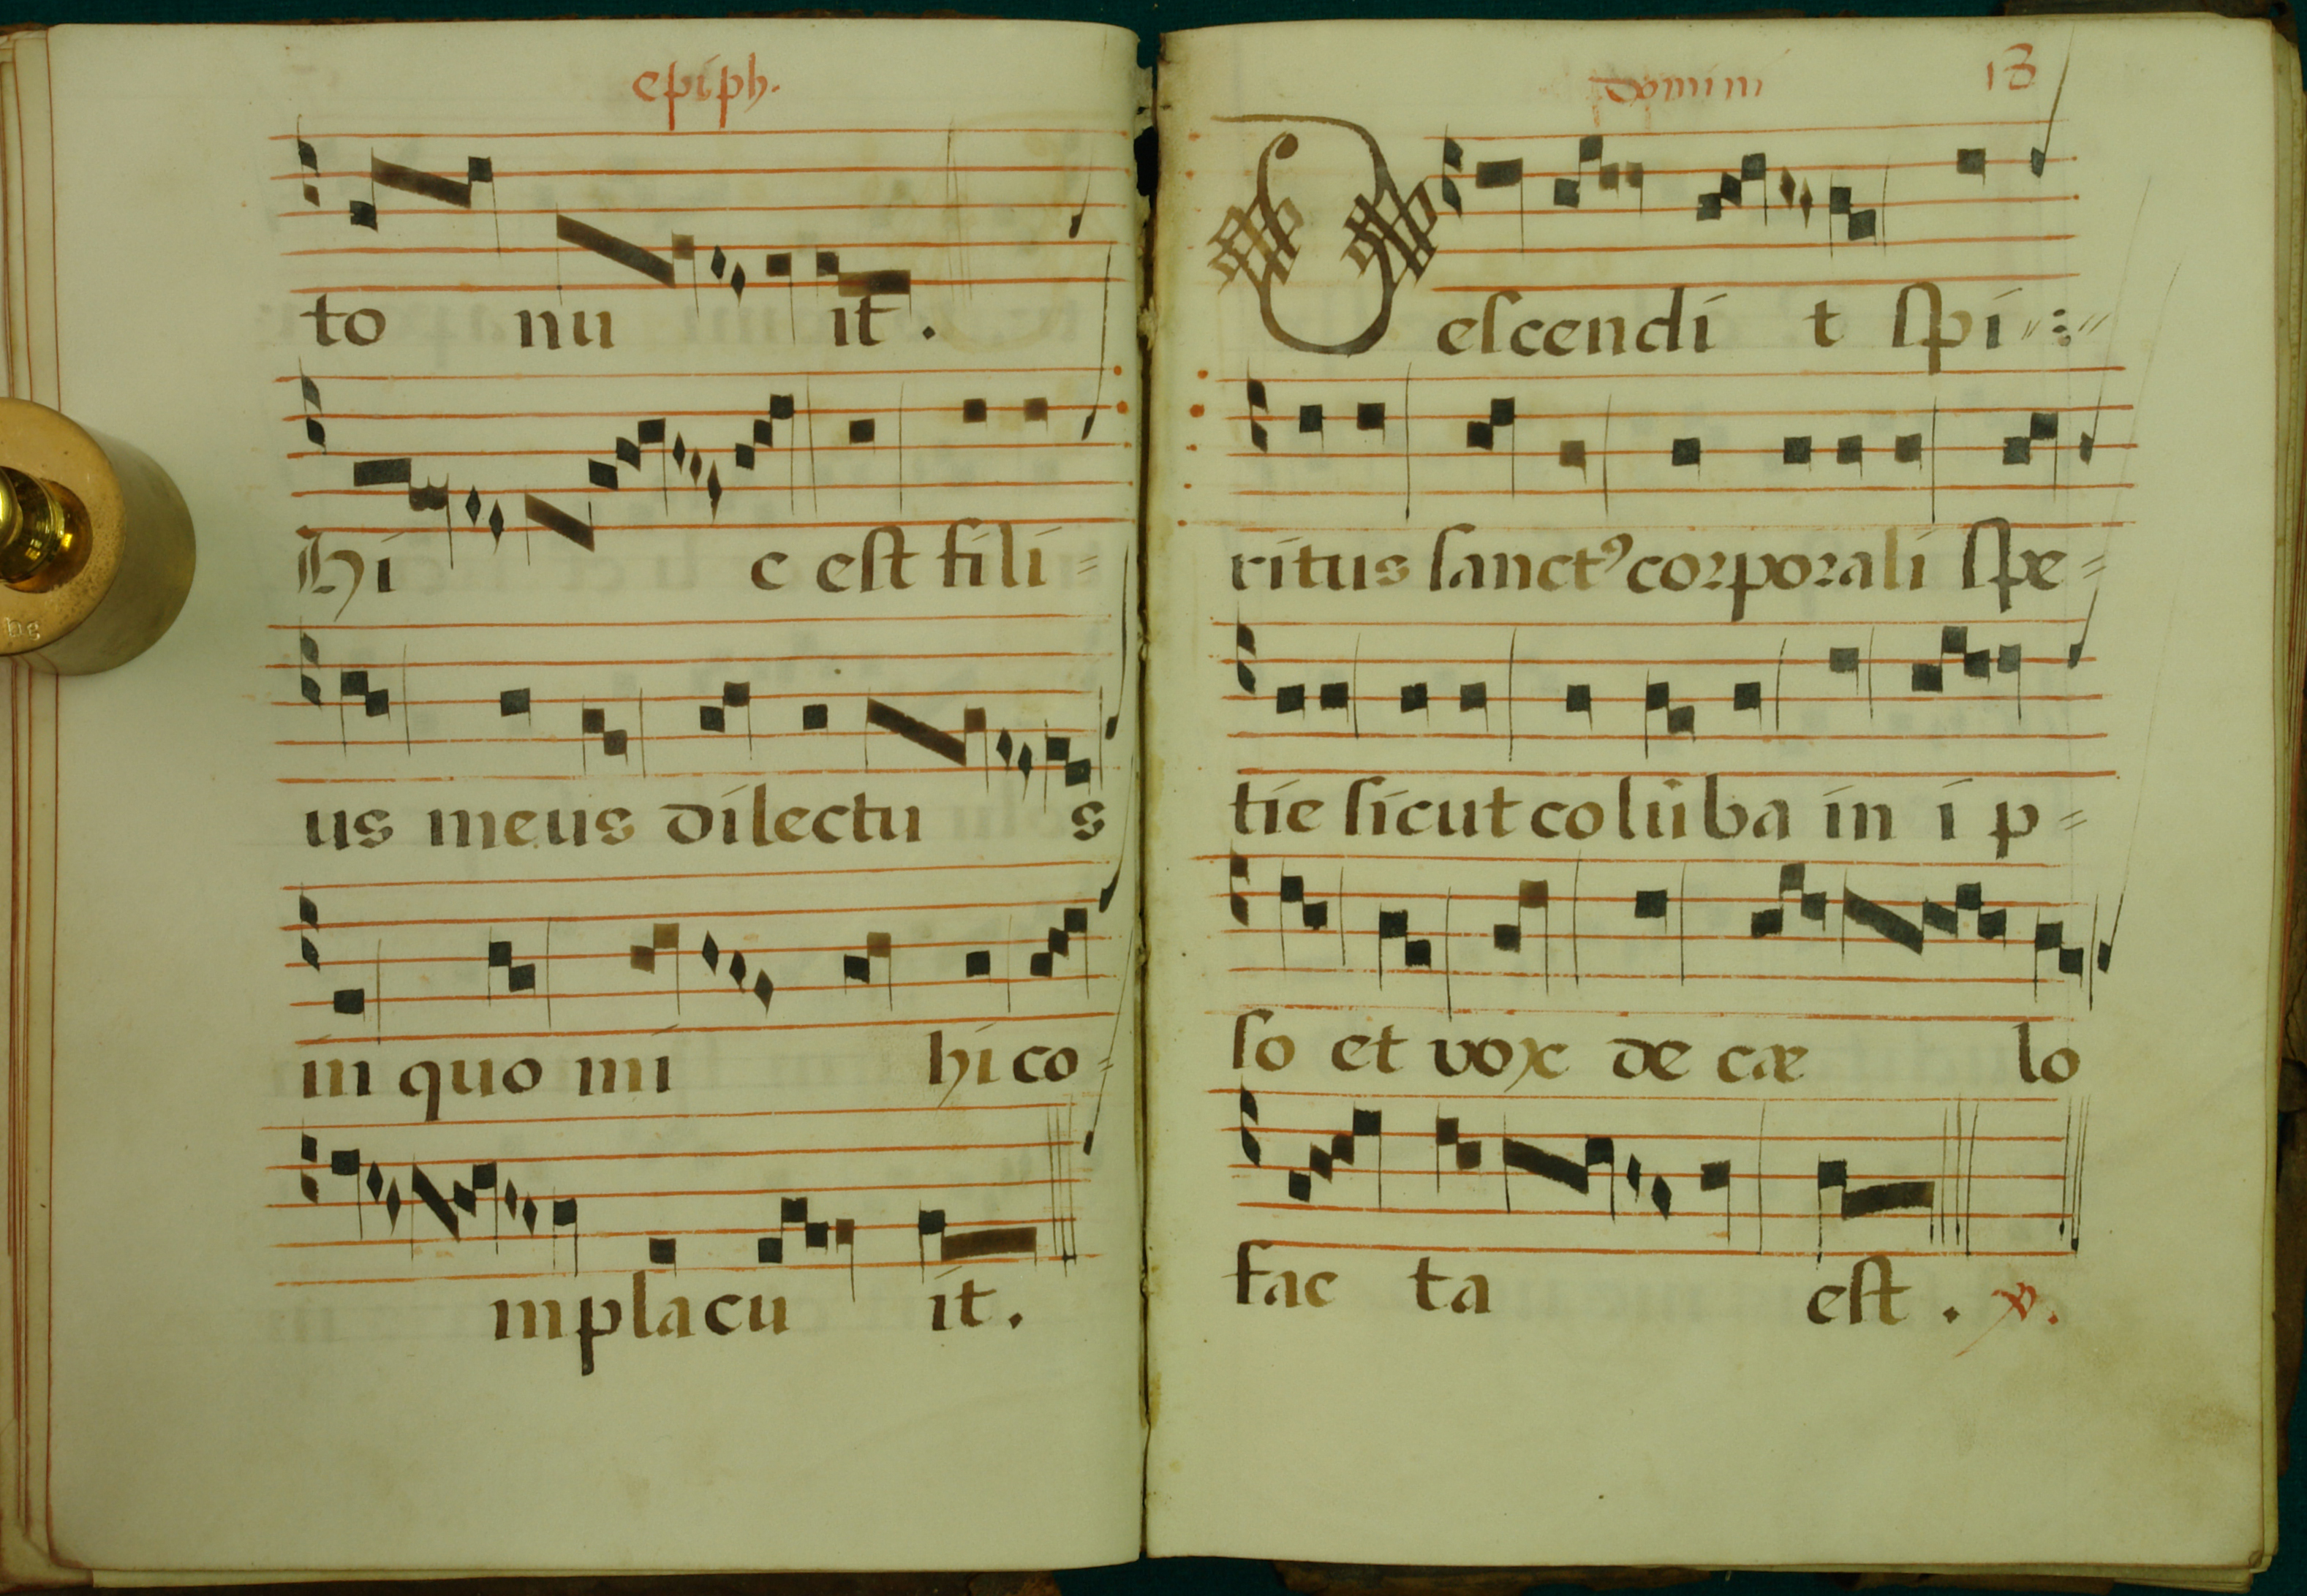 epiph.
to nu it.
Hi c eſt fili=
us meus dilectu s
in quo mi hi co=
mplacu it.
domini 18
Deſcendi t ſpi
ritus ſanctꝰ corporali ſpe=
tie ſicut colūba in i p=
ſo et vox de cæ lo
fac ta eſt. ℣.
bg